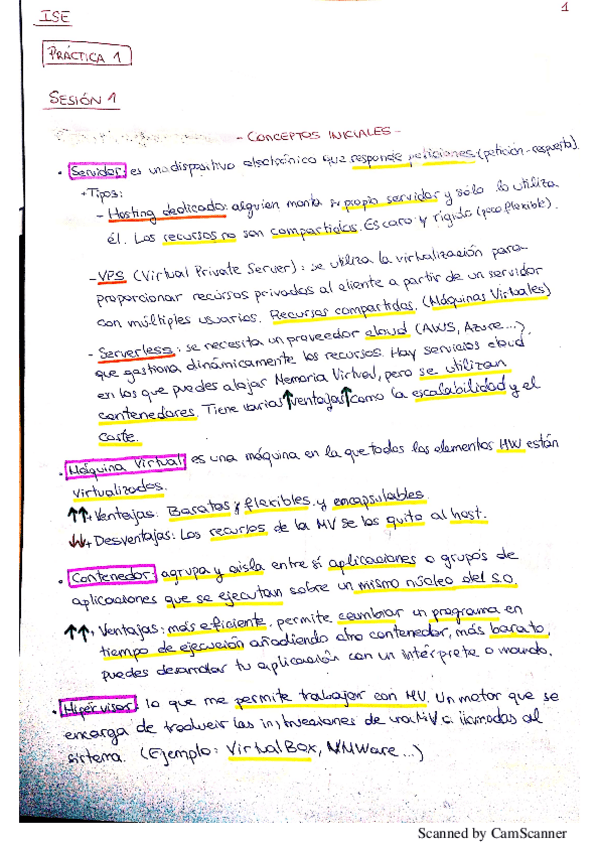 1
ISE
PRÁCTICA 1
SESIÓN 1
- CONCEPTOS INICIALES -
• Servidor: es un dispositivo electrónico que responde peticiones (petición-respuesta)
+ Tipos:
- Hosting dedicado: alguien monta su propio servidor y sólo lo utiliza
él. Los recursos no son compartidos. Es caro y rígido (poco flexible).
- VPS (Virtual Private Server): se utiliza la virtualización para
proporcionar recursos privados al cliente a partir de un servidor
con múltiples usuarios. Recursos compartidos. (Máquinas Virtuales)
- Serverless: se necesita un proveedor cloud (AWS, Azure...),
que gestiona dinámicamente los recursos. Hay servicios cloud
en los que puedes alojar Memoria Virtual, pero se utilizan
contenedores. Tiene varias ↑ventajas↑ como la escalabilidad y el
coste.
• Máquina Virtual: es una máquina en la que todos los elementos HW están
virtualizados.
↑↑+ Ventajas: Baratas y flexibles y encapsulables
↓↓+ Desventajas: Los recursos de la MV se los quito al host.
• Contenedor: agrupa y aísla entre sí aplicaciones o grupos de
aplicaciones que se ejecutan sobre un mismo núcleo del S.O.
↑↑+ Ventajas: más eficiente, permite cambiar un programa en
tiempo de ejecución añadiendo otro contenedor, más barato,
puedes desarrollar tu aplicación con un intérprete o mando.
• Hipervisor: lo que me permite trabajar con MV. Un motor que se
encarga de traducir las instrucciones de una MV a llamadas al
sistema. (Ejemplo: VirtualBox, VMWare...)
Scanned by CamScanner